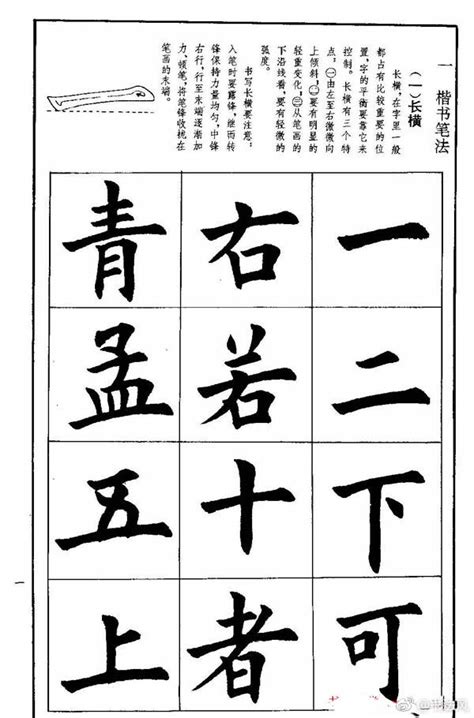 一 楷书笔法
（一）长横
长横，在字里一般
都占有比较重要的位
置，字的平衡要靠它来
控制。长横有三个特
点，㈠由左至右微微向
上倾斜，㈡要有明显的
轻重变化，㈢从笔画的
下沿线看，要有轻微的
弧度。
书写长横要注意：
入笔时要露锋，继而转
锋保持力量均匀，中锋
右行，行至末端逐渐加
力、顿笔，将笔锋收拢在
笔画的末端。
一 二 下 可
右 若 十 者
青 孟 五 上
一